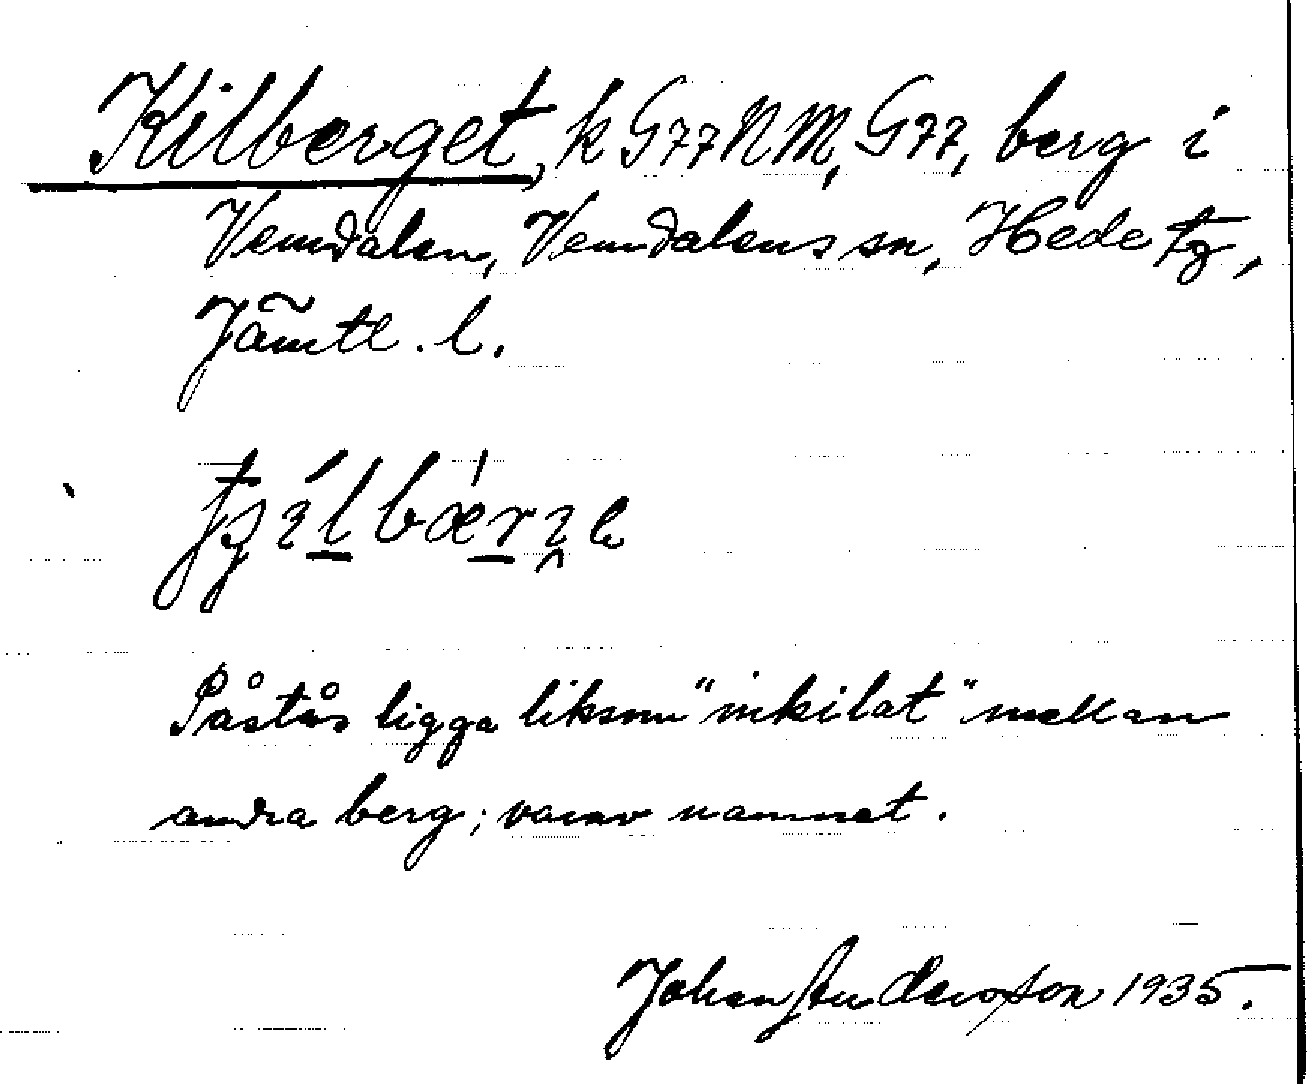 Kilberget, k G77NM, G77, berg i
Vemdalen, Vemdalens sn, Hede tg,
Jämtl. l.
Påstås ligga liksom "inkilat" mellan
andra berg; varav namnet.
Johan Andersson 1935.